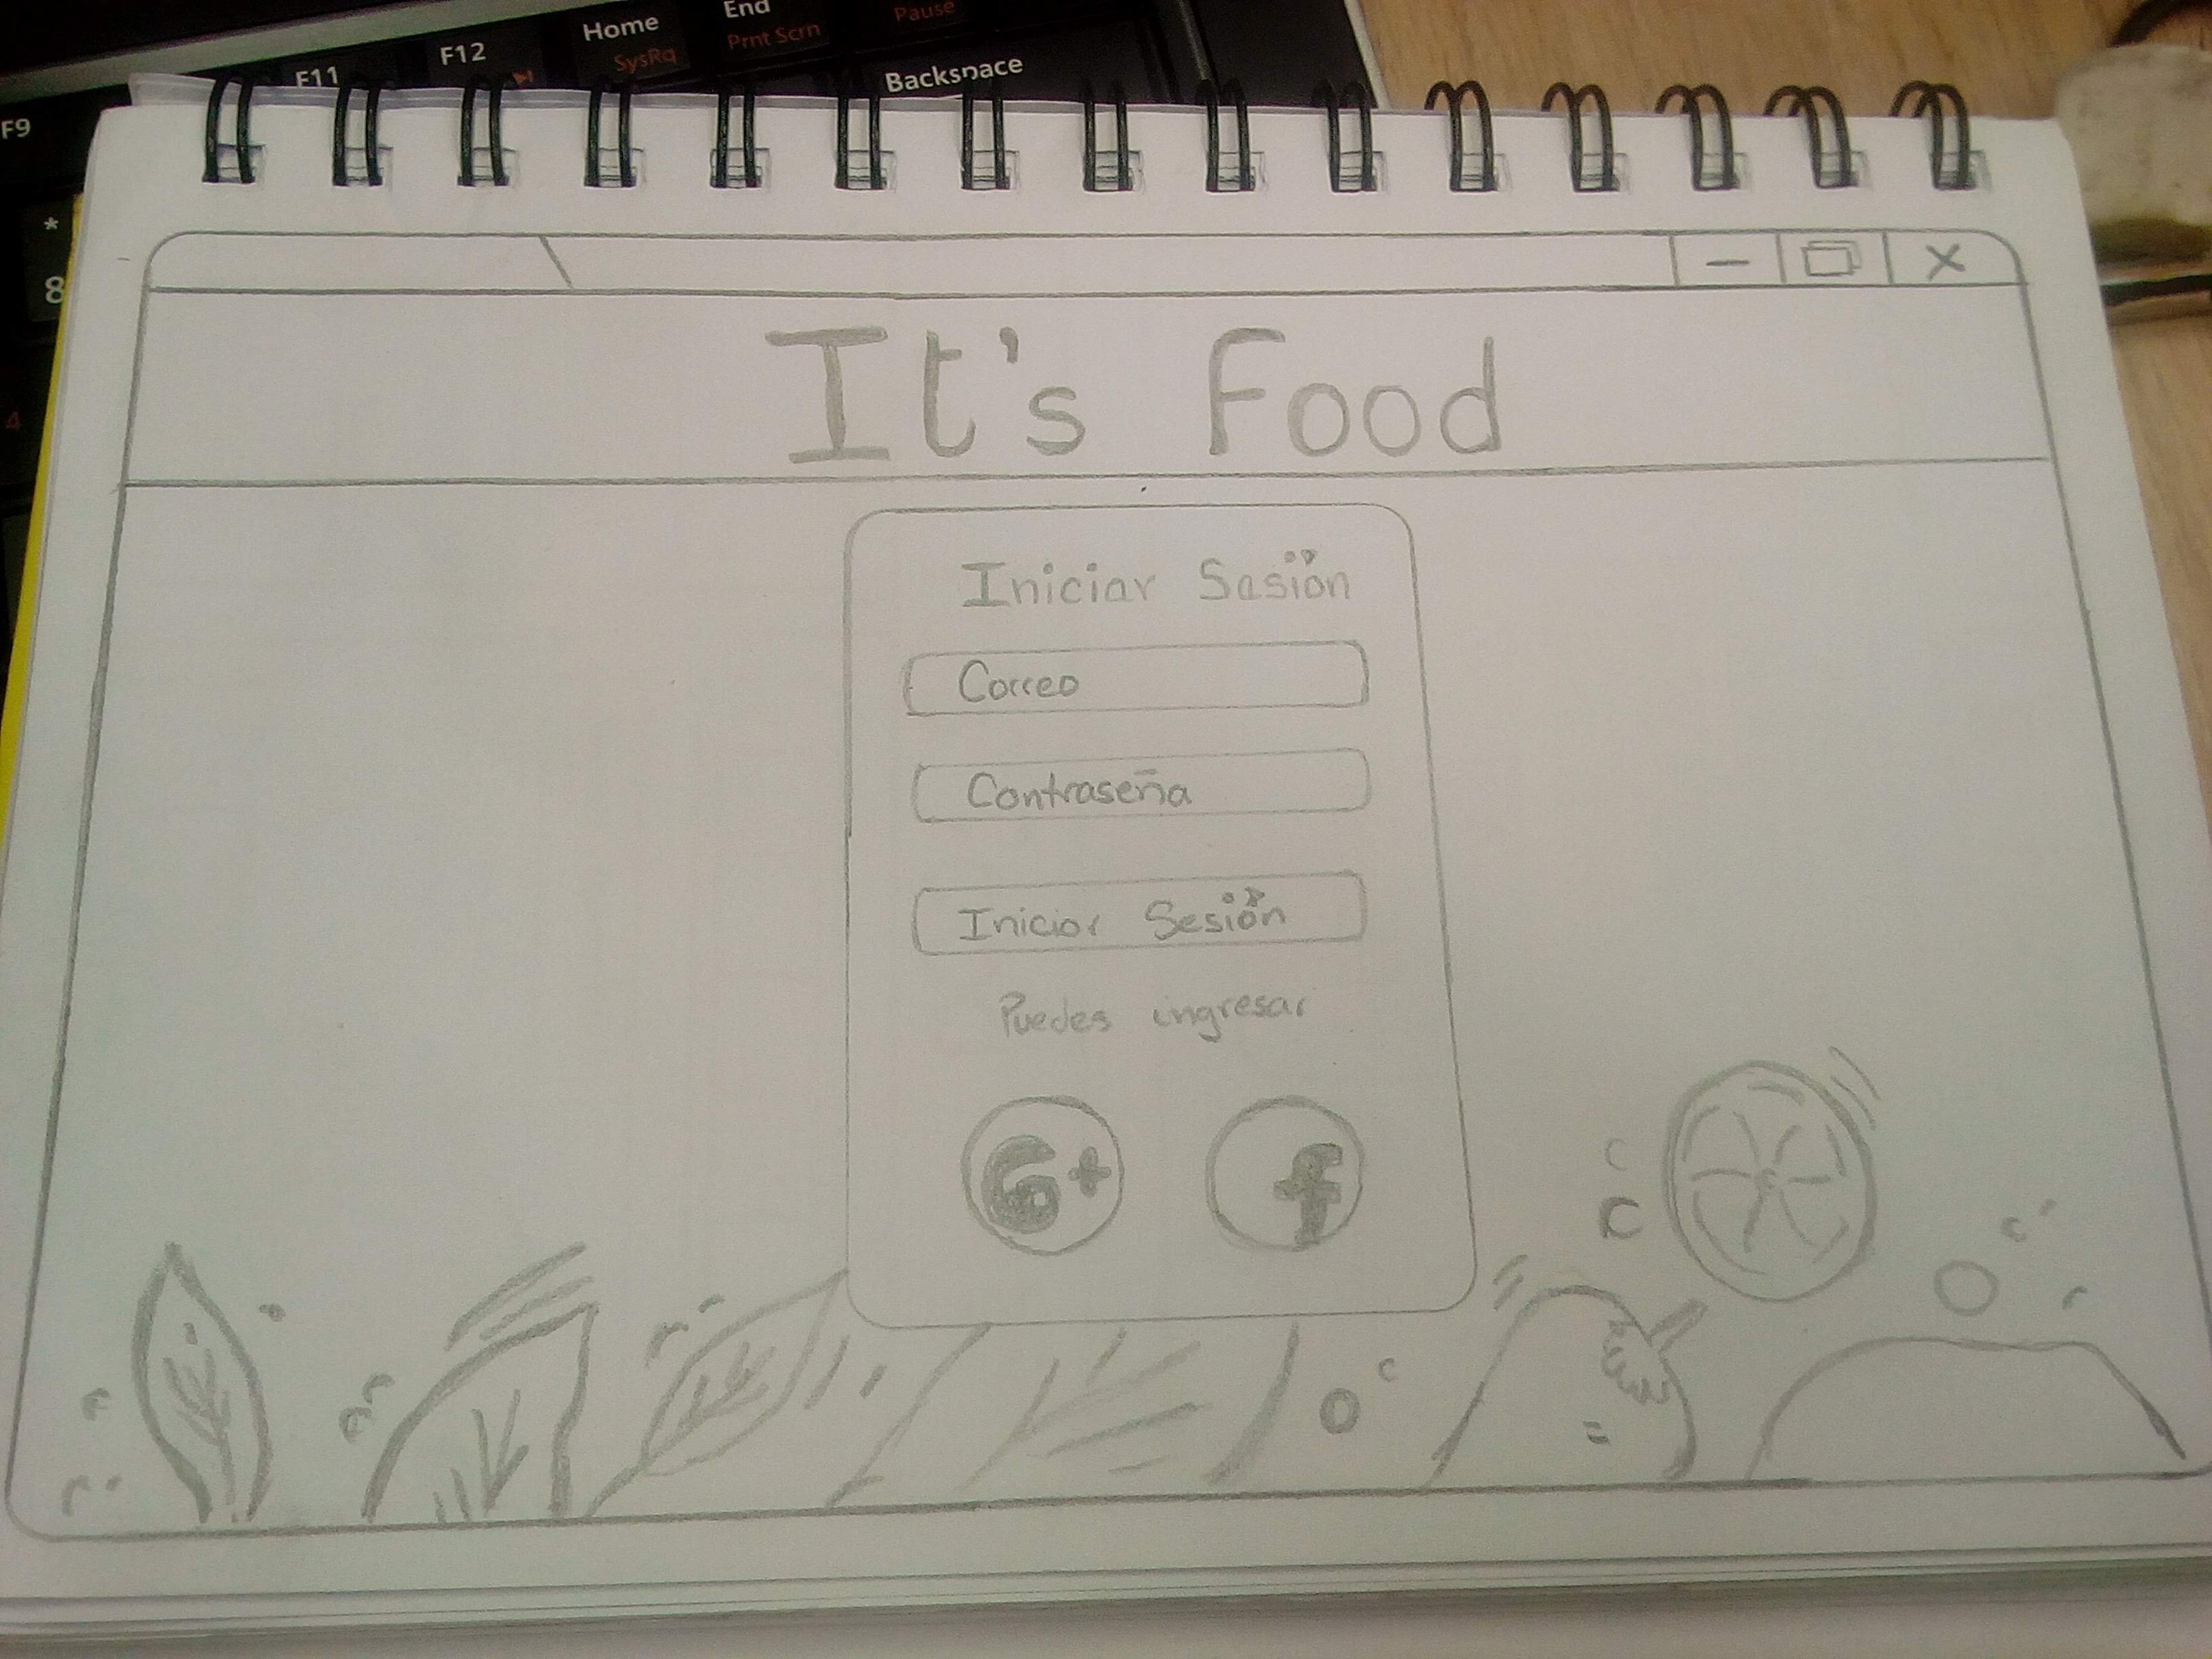 F9
F11
F12
Home
SysRq
End
Prnt Scrn
Pause
Backspace
*
8
4
It's Food
Iniciar Sasión
Correo
Contraseña
Iniciar Sesión
Puedes ingresar
G+
f